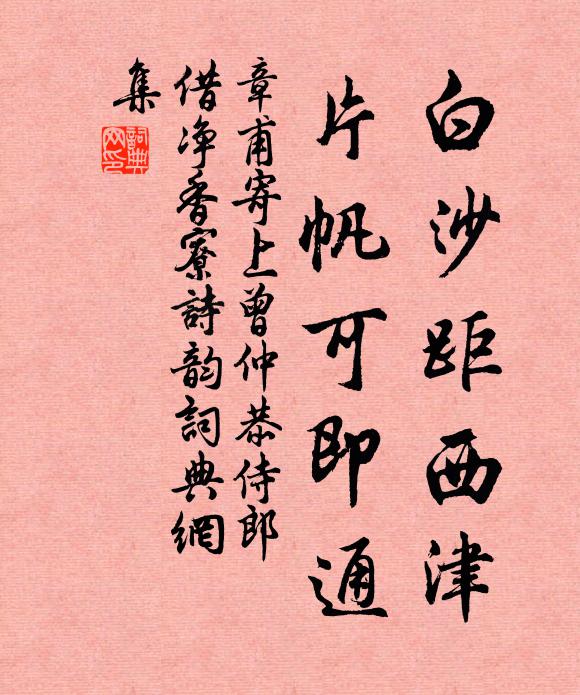 白沙距西津
片帆可即通
章甫寄上曾仲恭侍郎
借净香寮詩韵詞典網
集
詞典
网印